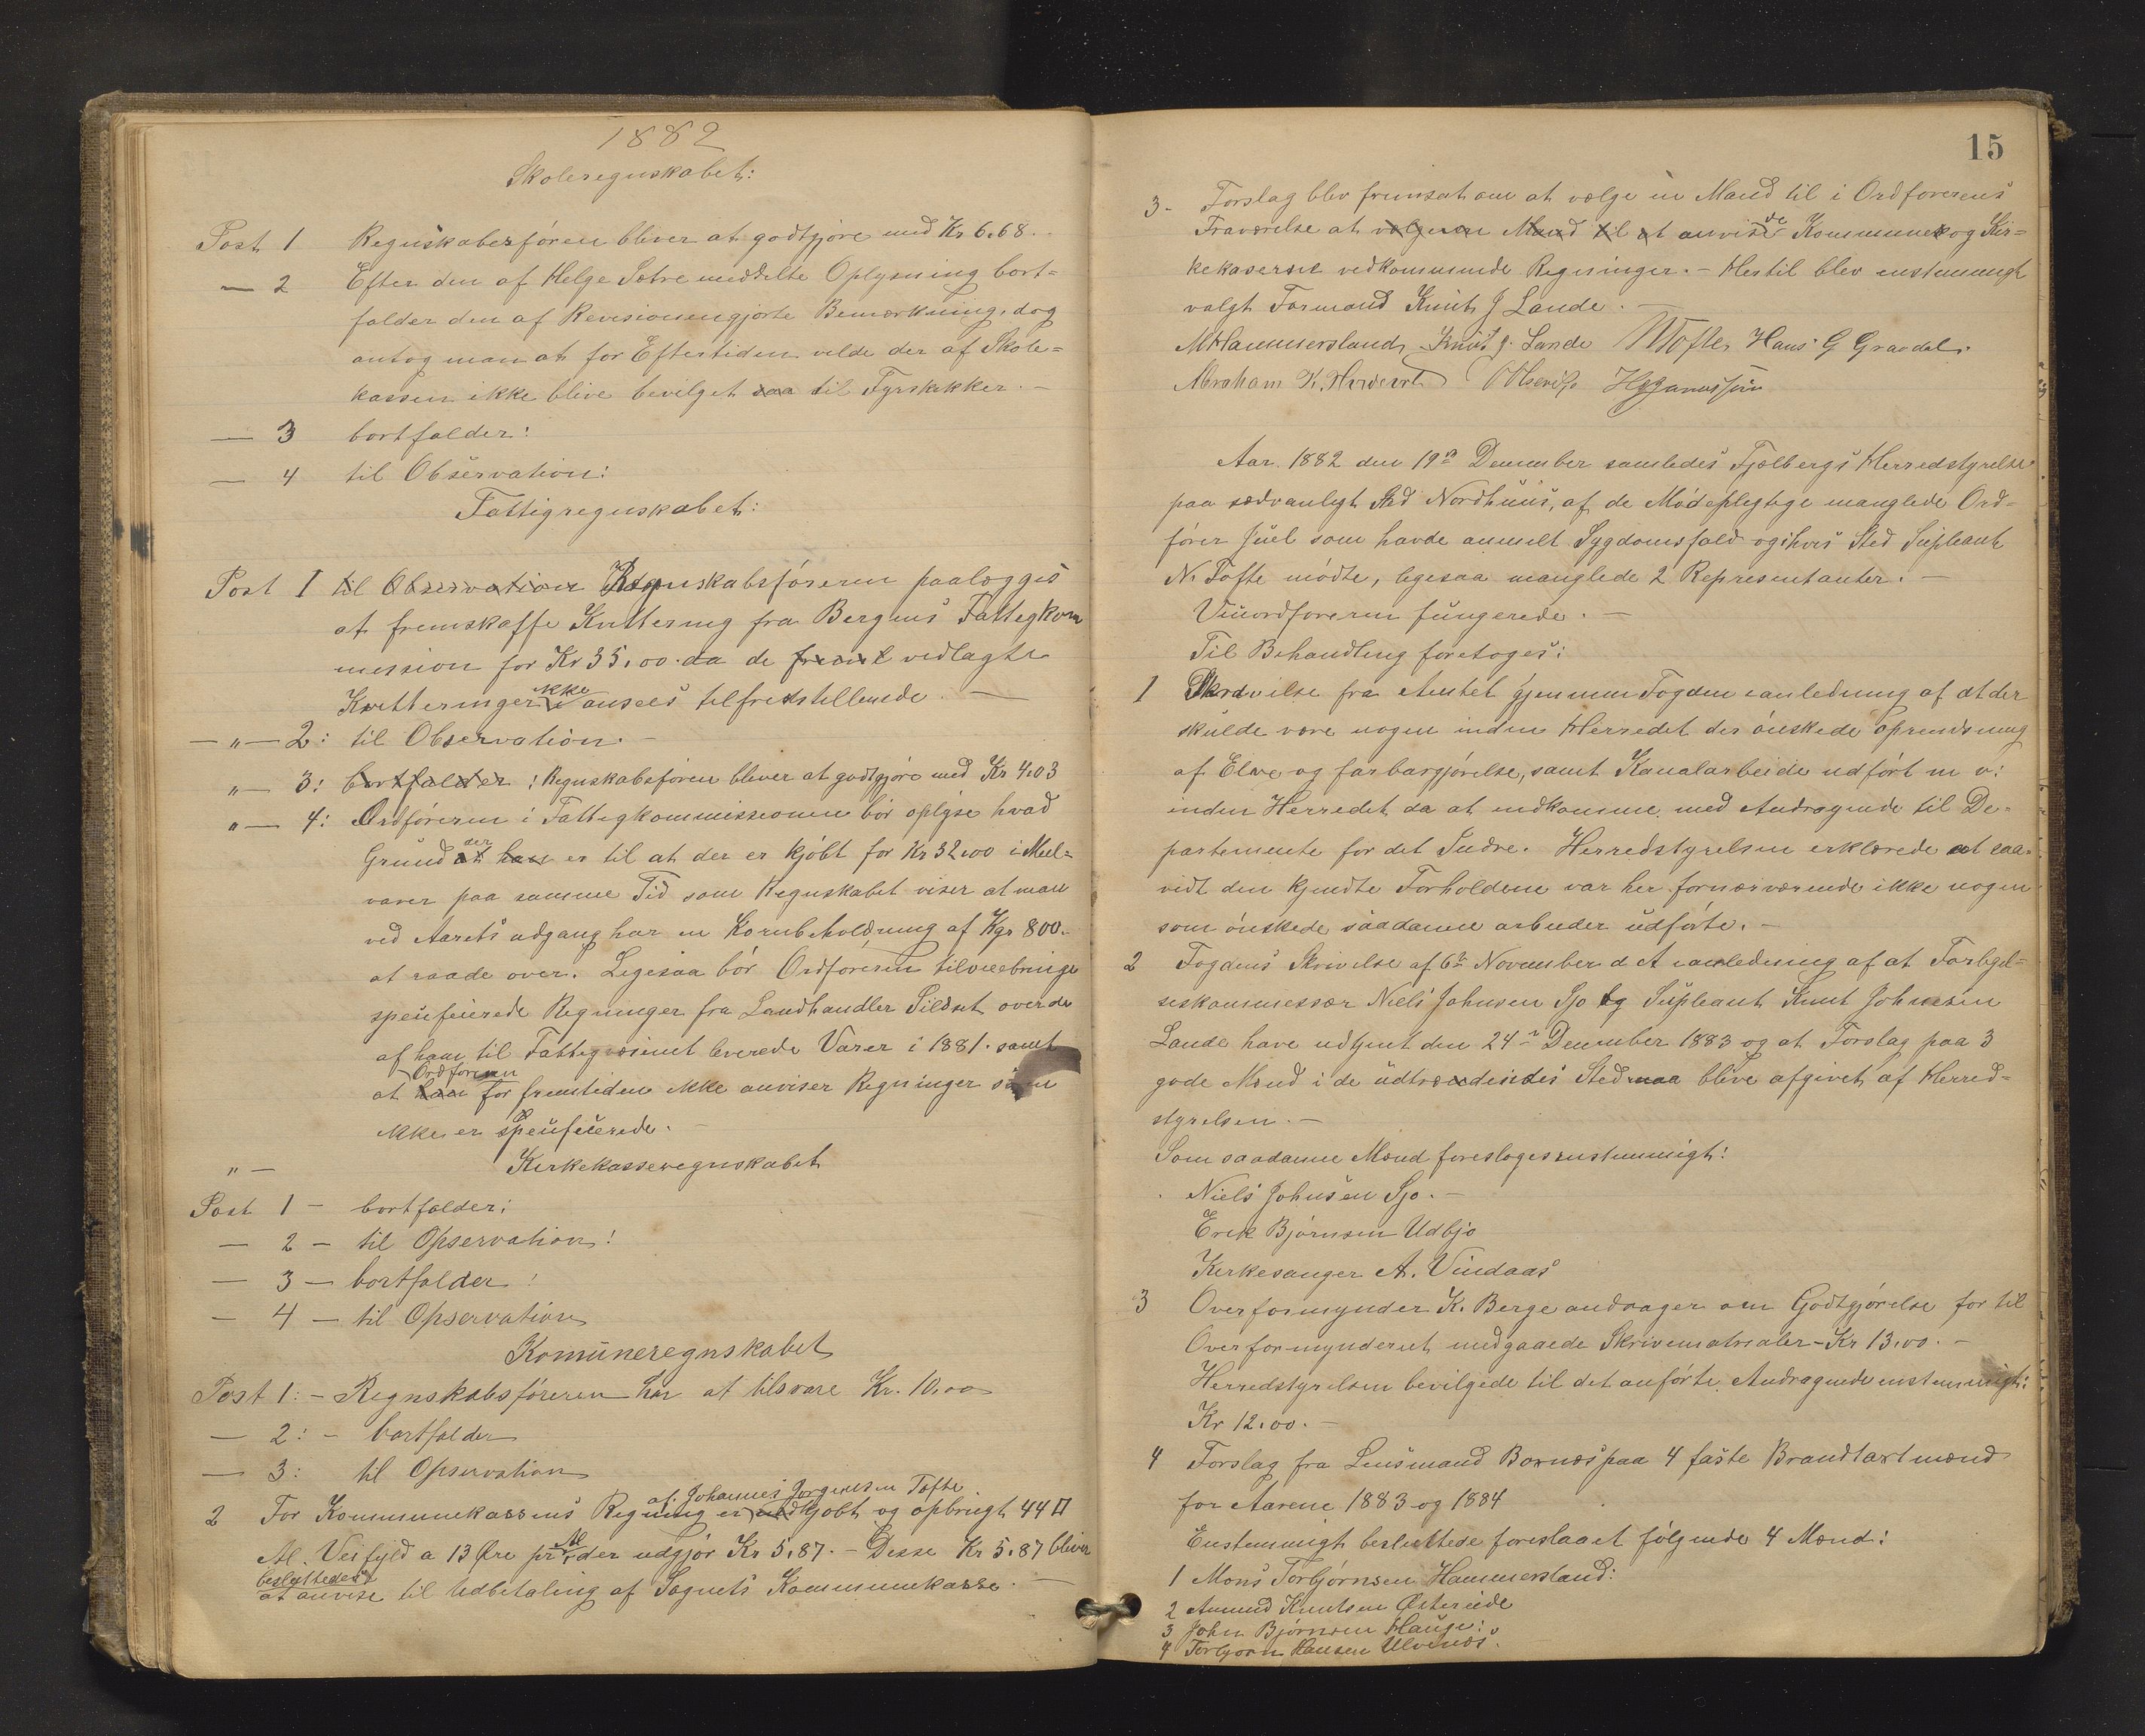 1882
Skoleregnskabet:
Post 1 Regnskabsføreren bliver at godtgjøre med Kr 6.68.
— 2 Efter den af Helge Sætre meddelte Oplysning bort-
falder den af Revisionen gjorte Bemærkning, dog
antog man at for Eftertiden vilde der af Skole-
kassen ikke blive bevilget saa til Fyrstikker.—
— 3 bortfalder:
— 4 til Observation:
Fattigregnskabet:
Post 1 til Observation Regnskabsføreren paalægges
at fremskaffe Kvittering fra Bergens Fattigkom
mission for Kr 35,00. da de vedlagte
Kvitteringer ikke ansees tilfredstillende.—
—"— 2: til Observation.—
"— 3: bortfalder: Regnskabsføren bliver at godtgjøre med Kr 4.03
"— 4: Ordføreren i Fattigkommissionen bør oplyse hvad
Grund at han der er til at der er kjøbt for Kr 32.00 i Meel-
varer paa samme Tid som Regnskabet viser at man
ved Aarets udgang har en Kornbeholdning af Kgr 800.
at raade over. Ligesaa bør Ordføreren tilveiebringe
specificerede Regninger fra Landhandler Sildset over de
af ham til Fattigvæsenet leverede Varer i 1881. samt
at han Ordføreren for fremtiden ikke anviser Regninger som
ikke er specificerede.—
"— Kirkekasseregnskabet
Post 1 – bortfalder:
— 2 – til Opservation:
— 3 — bortfalder:
— 4 — til Opservation
Komüneregnskabet
Post 1:– Regnskabsføreren har at tilsvare Kr. 10.00
— 2: – bortfalder
— 3: til Opservation
2 For Kommunekassens Regning er af Johannes Jørgensen Tofte indkjøbt og opbrugt 44 □
Al. Veifyld a 13 Øre pr Al der udgjør Kr 5.87.— Disse Kr 5.87 bliver
besluttedes at anvise til Udbetaling af Sognets Kommunekasse.—
15
3- Forslag blev fremsat om at vælge en Mand til i Ordførerens
Fraværelse at vælge en Mand til at anvise de Kommune og Kir-
kekasserne vedkommende Regninger.— Hertil blev enstemmigt
valgt Formand Knut J Lande.—
M Hammersland, Knut J. Lande N Tofte, Hans G Gravdal.
Abraham K. O Olsen
Aar 1882 den 19de December samledes Fjelbergs Herredstyrelse
paa sædvanligt Sted Nordhuus, af de Mødepligtige manglede Ord-
fører Juel som havde anmelt Sygdomsfald og i hvis Sted Supleant
N. Tofte mødte, ligesaa manglede 2 Representanter.—
Viceordføreren fungerede.—
Til Behandling foretoges:
1 Skrivelse fra Amtet gjennem Fogden i anledning af at der
skulde være nogen inden Herredet der ønskede oprendsning
af Elve og farbargjørelse, samt Kanalarbeide udført m v:
inden Herredet da at indkomme med Andragende til De-
partemente for det Indre. Herredstyrelsen erklærede at saa-
vidt den kjendte Forholdene var her fornærværende ikke nogen
som ønskede saadanne arbeider udførte.—
2 Fogdens Skrivelse af 6te November d A i anledning af at Forligel-
seskommissær Niels Johnsen Sjo og Supleant Knut Johnesen
Lande have udtjent den 24de December 1883 og at Forslag paa 3
gode Mænd i de udtrædendes Sted maa blive afgivet af Herred-
styrelsen.—
Som saadanne Mænd foresloges enstemmigt:
Niels Johnsen Sjo.—
Erik Bjørnsen Udbjo
Kirkesanger A. Vindaas
3 Overformynder K. Berge andrager om Godtgjørelse for til
Overformynderiet medgaaede Skrivematrialer– Kr 13.00.—
Herredstyrelsen bevilgede til det anførte Andragende enstemmigt:
Kr 12.00.—
4 Forslag fra Lensmand Bornæs paa 4 faste Brandtaxtmænd
for Aarene 1883 og 1884
Enstemmigt besluttede foreslaaet følgende 4 Mænd:
1 Mons Torbjørnsen Hammersland:
2 Amund Knutsen Østeriede
3 John Bjørnsen Hauge:
4 Torbjørn Hansen Ulvenæs.